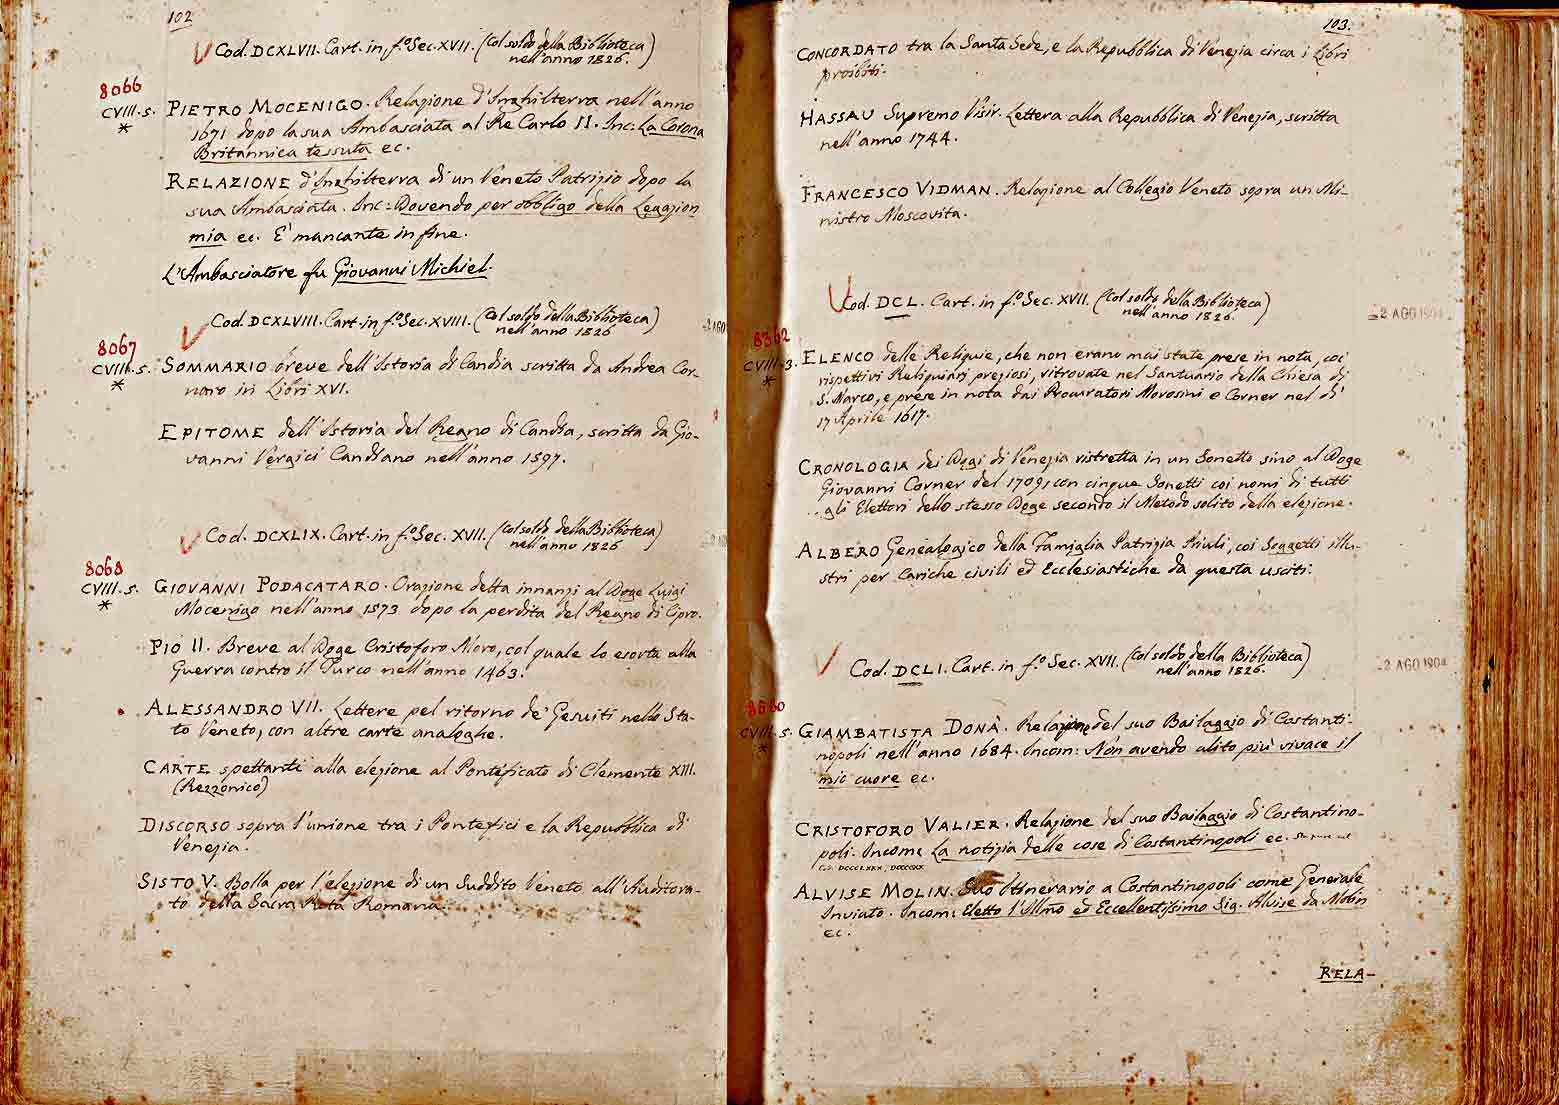 102
Cod. DCXLVII. Cart. in f.º Sec. XVII. (Col soldo della Biblioteca
nell'anno 1826.)
8066
CVIII. 5.
*
PIETRO MOCENIGO. Relazione d'Inghilterra nell'anno
1671 dopo la sua Ambasciata al Re Carlo II. Inc: La Corona
Britannica tessuta ec.
RELAZIONE d'Inghilterra di un Veneto Patrizio dopo la
sua Ambasciata. Inc: Dovendo per obbligo della Legazion
mia ec. E' mancante in fine.
L'Ambasciatore fu Giovanni Michiel.
Cod. DCXLVIII. Cart. in f.º Sec. XVIII. (Col soldo della Biblioteca
nell'anno 1826)
2 AGO
8067
CVIII. 5.
*
SOMMARIO breve dell'Istoria di Candia scritta da Andrea Cor-
naro in Libri XVI.
EPITOME dell'Istoria del Regno di Candia, scritta da Gio-
vanni Vergici Candiano nell'anno 1597.
Cod. DCXLIX. Cart. in f.º Sec. XVII. (Col soldo della Biblioteca
nell'anno 1826)
8068
CVIII. 5.
*
GIOVANNI PODACATARO. Orazione detta innanzi al Doge Luigi
Mocenigo nell'anno 1573 dopo la perdita del Regno di Cipro.
PIO II. Breve al Doge Cristoforo Moro, col quale lo esorta alla
Guerra contro il Turco nell'anno 1463.
ALESSANDRO VII. Lettere pel ritorno de' Gesuiti nello Sta-
to Veneto, con altre carte analoghe.
CARTE spettanti alla elezione al Pontificato di Clemente XIII.
(Rezzonico)
DISCORSO sopra l'unione tra i Pontefici e la Repubblica di
Venezia.
SISTO V. Bolla per l'elezione di un Suddito Veneto all'Auditora-
to della Sacra Rota Romana.
103.
CONCORDATO tra la Santa Sede, e la Repubblica di Venezia circa i Libri
proibiti.
HASSAU Supremo Visir. Lettera alla Repubblica di Venezia, scritta
nell'anno 1744.
FRANCESCO VIDMAN. Relazione al Collegio Veneto sopra un Mi-
nistro Moscovita.
Cod. DCL. Cart. in f.º Sec. XVII. (Col soldo della Biblioteca
nell'anno 1826.)
2 AGO 1904
8362
CVIII. 3.
*
ELENCO delle Reliquie, che non erano mai state prese in nota, coi
rispettivi Reliquiarj preziosi, ritrovate nel Santuario della Chiesa di
S. Marco, e prese in nota dai Procuratori Morosini e Corner nel dì
17 Aprile 1617.
CRONOLOGIA dei Dogi di Venezia ristretta in un Sonetto sino al Doge
Giovanni Corner del 1709, con cinque Sonetti coi nomi di tutti
gli Elettori dello stesso Doge secondo il Metodo solito della elezione.
ALBERO Genealogico della Famiglia Patrizia Priuli, coi Soggetti illu-
stri per cariche civili ed Ecclesiastiche da questa usciti.
Cod. DCLI. Cart. in f.º Sec. XVII. (Col soldo della Biblioteca
nell'anno 1826.)
2 AGO 1904
CVIII. 5.
*
GIAMBATISTA DONÀ. Relazione del suo Bailaggio di Costanti-
nopoli nell'anno 1684. Incom: Non avendo alito più vivace il
mio cuore ec.
CRISTOFORO VALIER. Relazione del suo Bailaggio di Costantino-
poli. Incom: La notizia delle cose di Costantinopoli ec.
ALVISE MOLIN. Suo Itinerario a Costantinopoli come Generale
Inviato. Incom: Eletto l'Illmo ed Eccellentissimo Sig. Alvise da Molin
ec.
RELA-